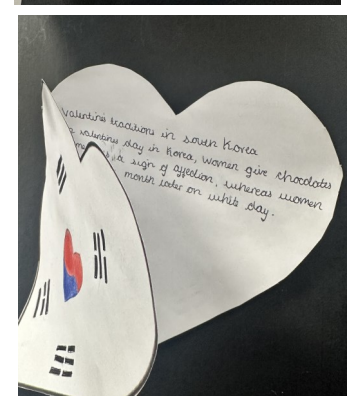 Valentine traditions in south Korea
valentines day in Korea, women give chocolates
a sign of affection, whereas women
month later on white day.